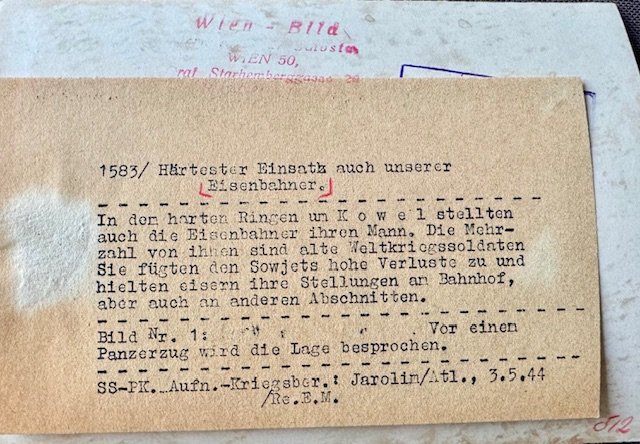 Wien - Bild
WIEN 50,
1583/ Härtester Einsatz auch unserer
Eisenbahner.
In dem harten Ringen um K o w e l stellten
auch die Eisenbahner ihren Mann. Die Mehr-
zahl von ihnen sind alte Weltkriegssoldaten
Sie fügten den Sowjets hohe Verluste zu und
hielten eisern ihre Stellungen am Bahnhof,
aber auch an anderen Abschnitten.
Bild Nr. 1: Vor einem
Panzerzug wird die Lage besprochen.
SS-PK. Aufn.-Kriegsber.: Jarolim/Atl., 3.5.44
/Re.E.M.
812